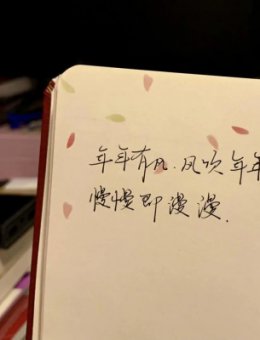 年年有风.风吹年年
慢慢即漫漫.